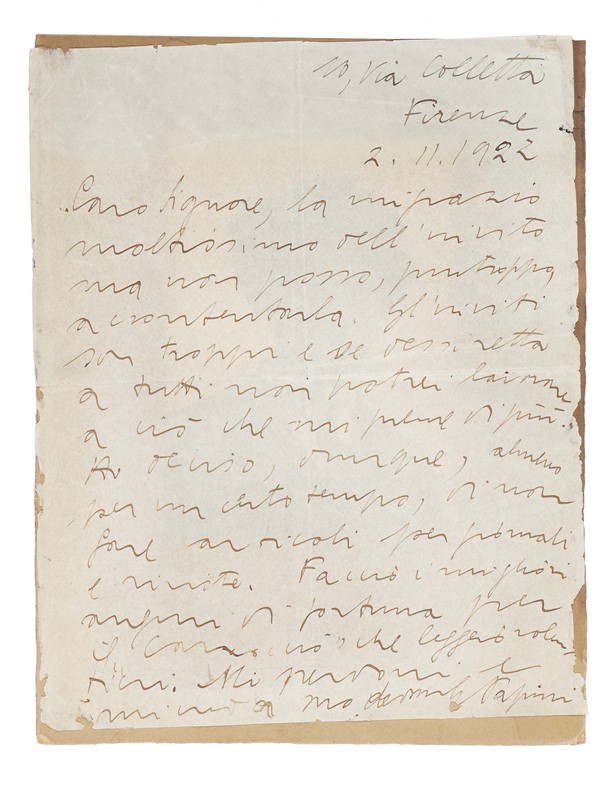 10, Via Colletta
Firenze
2. 11. 1922
Caro Signore, la ringrazio
moltissimo dell'invito
ma non posso, purtroppo,
accontentarla. Gl'inviti
son troppi e se dessi retta
a tutti non potrei lavorare
a ciò che mi preme di più.
Ho deciso, dunque, almeno
per un certo tempo, di non
fare articoli per giornali
e riviste. Faccio i migliori
auguri di fortuna per
il che leggerò volen-
tieri. Mi perdoni e
mi creda Papini